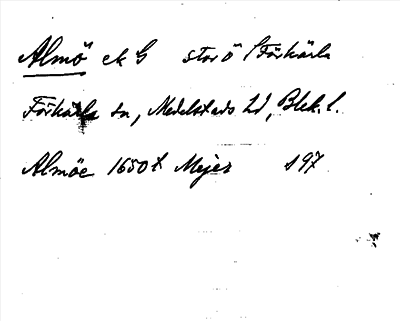 Almö ek G stor ö i Förkärla
Förkärla sn, Medelstads hd, Blek. l.
Almöe 1650t Mejer 197